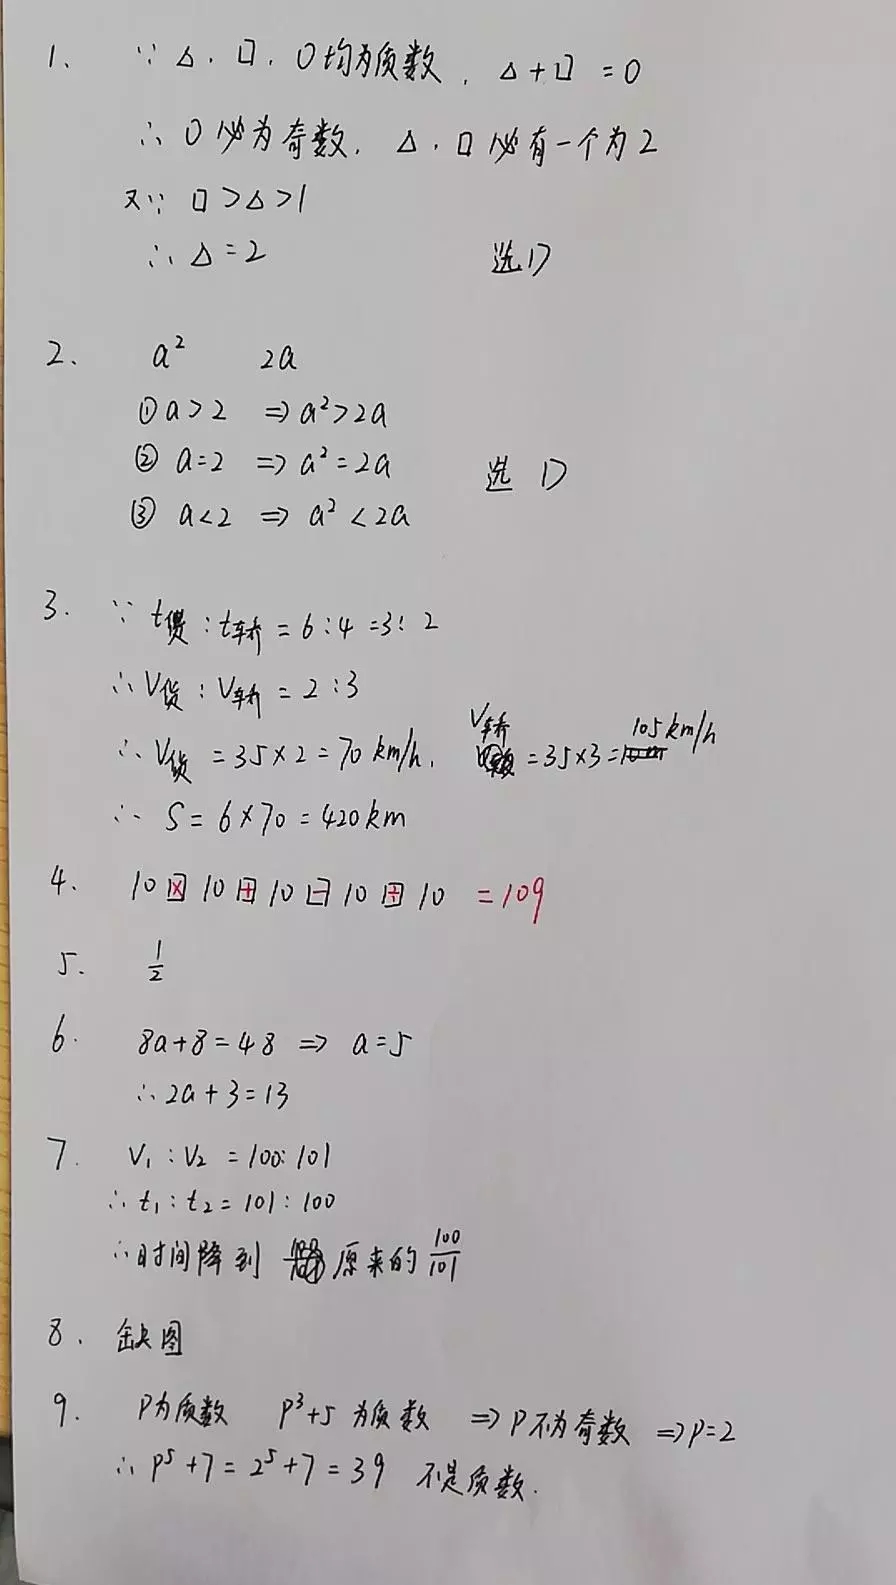 1、 ∵ △. □. ○均为质数, △+□ =○
∴ ○必为奇数. △.□必有一个为2
又∵ □>△>1
∴ △=2 选D
2、 a² 2a
① a>2 ⇒ a²>2a
② a=2 ⇒ a²=2a 选 D
③ a<2 ⇒ a²<2a
3. ∵ t货:t轿=6:4=3:2
∴ V货:V轿=2:3
∴ V货=35×2=70km/h. V轿=35×3=105km/h
∴ S=6×70=420km
4、 10 × 10 + 10 - 10 ÷ 10 =109
5. 1/2
6. 8a+8=48 ⇒ a=5
∴ 2a+3=13
7. V₁:V₂=100:101
∴ t₁:t₂=101:100
∴时间降到 原来的 100/101
8. 缺图
9. P为质数 P³+5为质数 ⇒P不为奇数 ⇒P=2
∴ P⁵+7=2⁵+7=39 不是质数.